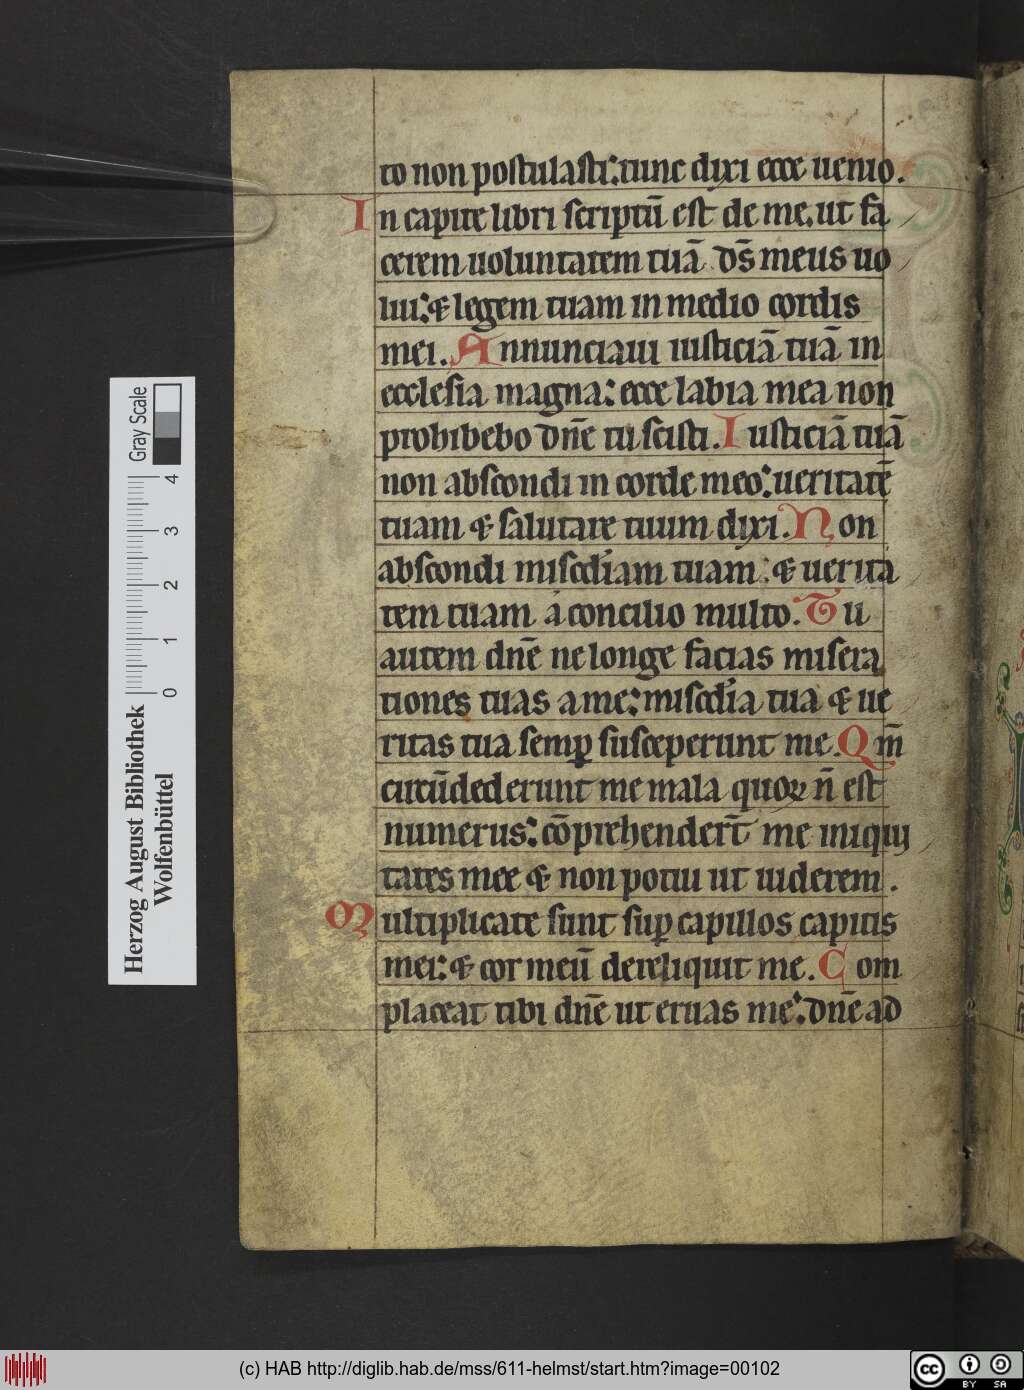 to non postulasti: tunc dixi ecce uenio.
In capite libri scriptū est de me, ut fa
cerem uoluntatem tuā. ds̄ meus uo
lui: & legem tuam in medio cordis
mei. Annunciaui iusticiā tuā in
ecclesia magna: ecce labia mea non
prohibebo dn̄e tu scisti. Iusticiā tuā
non abscondi in corde meo: ueritatē
tuam & salutare tuum dixi. Non
abscondi misc̄diam tuam: & uerita
tem tuam a concilio multo. Tu
autem dn̄e ne longe facias misera
tiones tuas a me: misc̄dia tua & ue
ritas tua semꝑ susceperunt me. Qm̄
circūdederunt me mala quoꝝ n̄ est
numerus: cōprehendert̄ me iniqui
tates mee & non potui ut uiderem.
Multiplicate sunt suꝑ capillos capitis
mei: & cor meū dereliquit me. Com
placeat tibi dn̄e ut eruas me: dn̄e ad
Herzog August Bibliothek
Wolfenbüttel
0 1 2 3 4
Gray Scale
(c) HAB http://diglib.hab.de/mss/611-helmst/start.htm?image=00102
cc BY SA